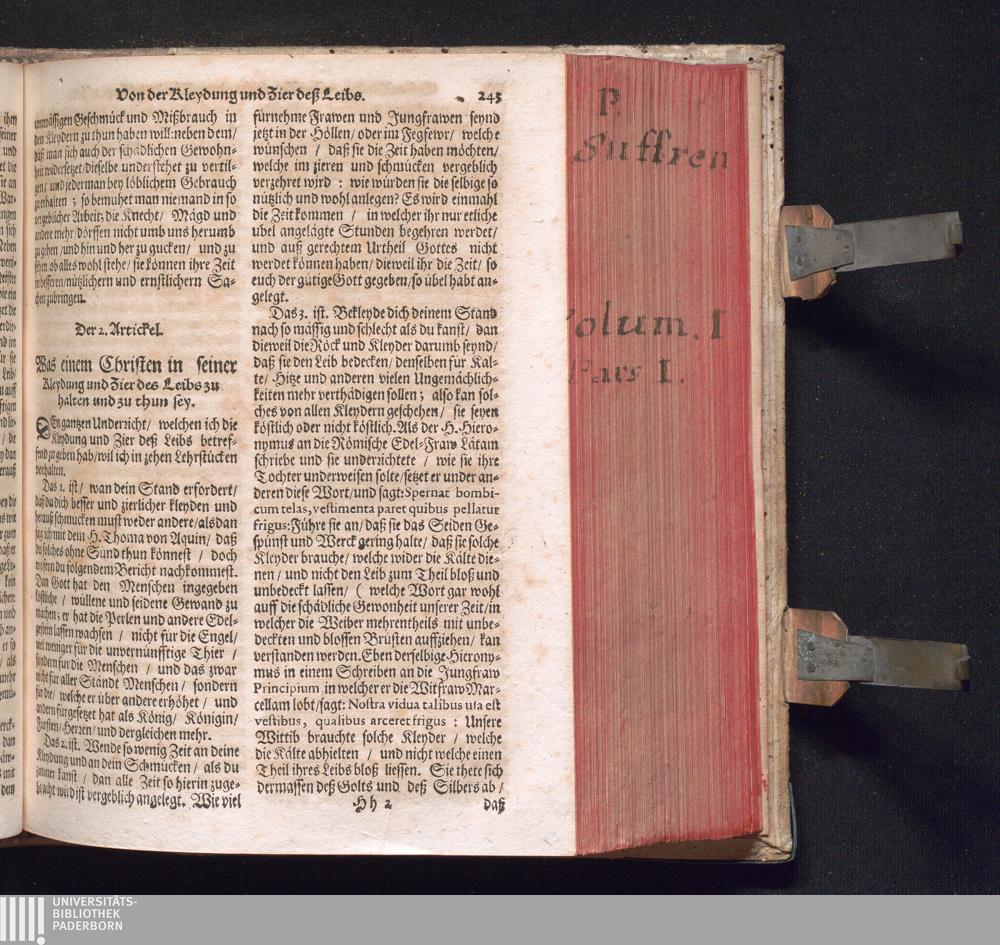 Von der Kleydung und Zier deß Leibs. 243
unmässigen Geschmück und Mißbrauch in
den Kleydern zu thun haben will: neben dem/
daß man sich auch der schädlichen Gewohn-
heit widersetzet/dieselbe understehet zu vertil-
gen/ und jederman bey löblichem Gebrauch
zu erhalten ; so bemühet man niemand in so
vergeblicher Arbeit; die Knecht/ Mägd und
andere mehr/dörffen nicht umb uns herumb
zu gehen /und hin und her zu gucken/ und zu
sehen ob alles wohl stehe/ sie können ihre Zeit
in besseren/nützlichern und ernstlichern Sa-
chen zubringen.
Der 2. Artickel.
Was einem Christen in seiner
Kleydung und Zier des Leibs zu
halten und zu thun sey.
DEn gantzen Underricht/ welchen ich die
Kleydung und Zier deß Leibs betref-
fend zu geben hab/wil ich in zehen Lehrstücken
verhalten.
Das 1. ist/ wan dein Stand erfordert/
daß du dich besser und zierlicher kleyden und
herauß schmucken must weder andere/alsdan
sag ich mit dem H. Thoma von Aquin/ daß
du solches ohne Sünd thun könnest / doch
wofern du folgendem Bericht nachkommest.
Dan Gott hat den Menschen ingegeben
köstliche / wüllene und seidene Gewand zu
machen; er hat die Perlen und andere Edel-
gestein lassen wachsen / nicht für die Engel/
viel weniger für die unvernünfftige Thier /
sondern für die Menschen / und das zwar
nicht für aller Ständt Menschen/ sondern
für die/ welche er über andere erhöhet / und
andern fürgesetzet hat als König/ Königin/
Fürsten/Herren/ und dergleichen mehr.
Das 2. ist. Wende so wenig Zeit an deine
Kleydung und an dein Schmücken/ als du
immer kanst / dan alle Zeit so hierin zuge-
bracht wird ist vergeblich angelegt. Wie viel
fürnehme Frawen und Jungfrawen seynd
jetzt in der Höllen/ oder im Fegfewr/ welche
wünschen / daß sie die Zeit haben möchten/
welche im zieren und schmücken vergeblich
verzehret wird : wie würden sie die selbige so
nützlich und wohl anlegen? Es wird einmahl
die Zeit kommen / in welcher ihr nur etliche
übel angelägte Stunden begehren werdet/
und auß gerechtem Urtheil Gottes nicht
werdet können haben/ dieweil ihr die Zeit/ so
euch der gütige Gott gegeben/so übel habt an-
gelegt.
Das 3. ist. Bekleyde dich deinem Stand
nach so mässig und schlecht als du kanst/ dan
dieweil die Röck und Kleyder darumb seynd/
daß sie den Leib bedecken/ denselben für Käl-
te/ Hitze und anderen vielen Ungemächlich-
keiten mehr verthädigen sollen; also kan sol-
ches von allen Kleydern geschehen/ sie seyen
köstlich oder nicht köstlich. Als der H. Hiero-
nymus an die Römische Edel-Fraw Lätam
schriebe und sie underrichtete / wie sie ihre
Tochter underweisen solte/setzet er under an-
deren diese Wort/und sagt: Spernat bombi-
cum telas, vestimenta paret quibus pellatur
frigus: Führe sie an/daß sie das Seiden Ge-
spünst und Werck gering halte/ daß sie solche
Kleyder brauche/ welche wider die Kälte die-
nen/ und nicht den Leib zum Theil bloß und
unbedeckt lassen/ ( welche Wort gar wohl
auff die schädliche Gewonheit unserer Zeit/in
welcher die Weiber mehrentheils mit unbe-
deckten und blossen Brüsten auffziehen/ kan
verstanden werden. Eben derselbige Hierony-
mus in einem Schreiben an die Jungfraw
Principium in welcher er die Witfraw Mar-
cellam lobt/sagt: Nostra vidua talibus usa est
vestibus, qualibus arceret frigus : Unsere
Wittib brauchte solche Kleyder / welche
die Kälte abhielten / und nicht welche einen
Theil ihres Leibs bloß liessen. Sie thete sich
dermassen deß Golts und deß Silbers ab/
Hh 2 daß
P.
Suffren
Volum. I
Pars I.
UNIVERSITÄTS-
BIBLIOTHEK
PADERBORN